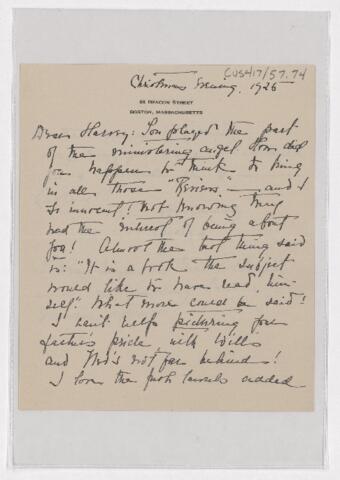 CUS417/57.74
Christmas Evening, 1925
BEACON STREET
BOSTON, MASSACHUSETTS
Dear Harvey: You played the part
of the ministering angel. How did
you happen to think to bring
in all those "Reviews" — and I
so innocent! Not knowing they
had the interest of being about
you! Almost the best thing said
is: "It is a book the subject
would like to have read, him-
self". What more could be said!
I can't help picturing your
father's pride, with
and not far behind!
I love the fresh laurels added